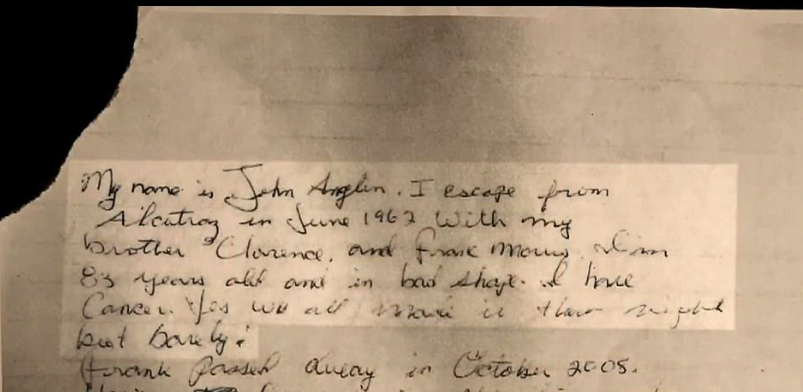 My name is John Anglin. I escape from
Alcatraz in June 1962 With my
brother Clarence, and Frank Morris. I'm
83 years old and in bad shape. I have
Cancer. Yes we all made it that night
but barely!
Frank passed away in October 2005.